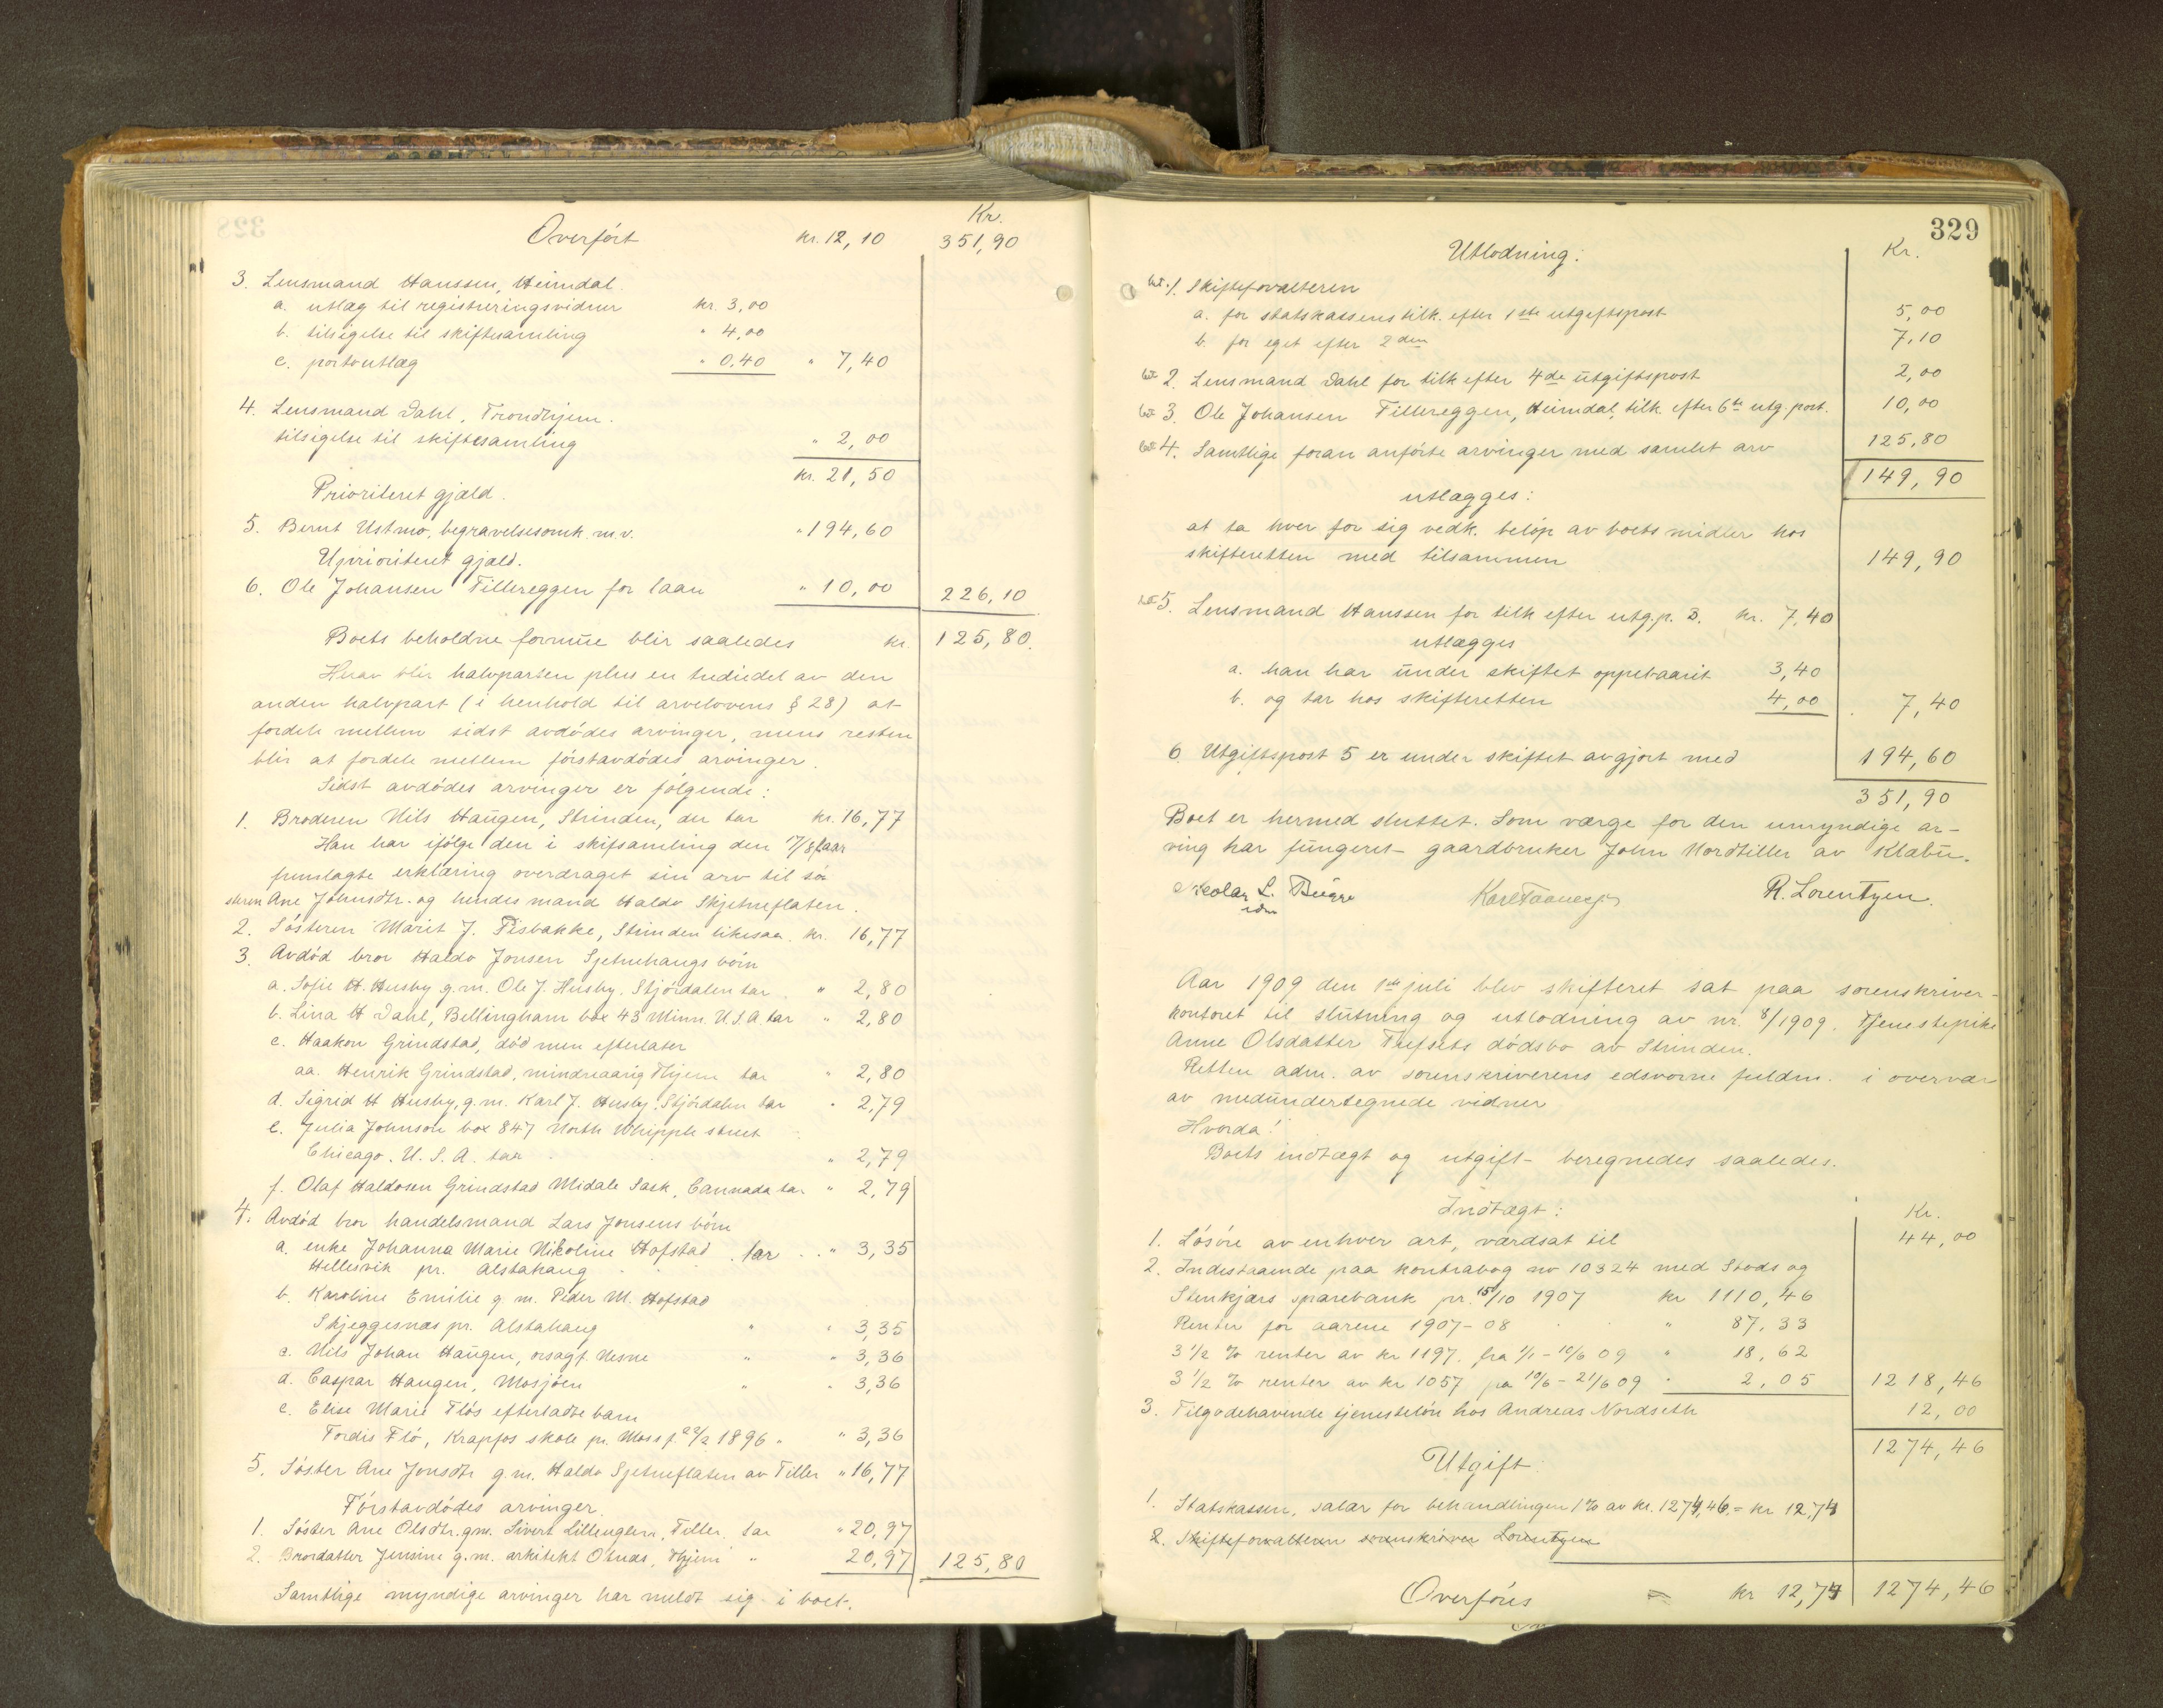 Kr.
Overført kr. 12,10 351,90
3. Lensmand Hanssen, Heimdal.
a. utlæg til registreringsvidner kr. 3,00
b. tilsigelse til skiftesamling " 4,00
c. portoutlæg " 0,40 " 7,40
4. Lensmand Dahl, Trondhjem.
tilsigelse til skiftesamling " 2,00
kr. 21,50
Prioriteret gjæld.
5. Bernt Ustmo, begravelsesomk. m.v. " 194,60
Uprioriteret gjæld.
6. Ole Johansen Tillereggen for laan " 10,00 226,10
Boets beholdne formue blir saaledes kr. 125,80.
Herav blir halvparten plus en trediedel av den
anden halvpart (i henhold til arvelovens § 28) at
fordele mellem sidst avdødes arvinger, mens resten
blir at fordele mellem førstavdødes arvinger.
Sidst avdødes arvinger er følgende:
1. Broderen Nils Haugen, Strinden, der tar kr. 16,77
Han har ifølge den i skifsamling den 17/8 f aar
fremlagte erklæring overdraget sin arv til sø-
steren Ane Johnsdtr. og hendes mand Haldo Skjetneflaten.
2. Søsteren Marit J. Fisbakke, Strinden likesaa. kr. 16,77
3. Avdød bror Haldo Jonsen Sjetnehaugs børn
a. Sofie H. Husby g.m. Ole J. Husby, Stjørdalen tar " 2,80
b. Lina H Dahl, Bellingham box 43 Minn. U.S.A. tar " 2,80
c. Haakon Grindstad, død men efterlater
aa. Henrik Grindstad, mindreaarig Thjem tar " 2,80
d. Sigrid H Husby, g.m. Karl J. Husby, Stjørdalen tar " 2,79
e. Julia Johnson box 847 North Whipple street
Chicago. U.S.A. tar " 2,79
f. Olaf Haldosen Grindstad Midale Sask, Cannada tar " 2,79
4. Avdød bror handelsmand Lars Jonsens børn
a. enke Johanna Marie Nikoline Hofstad tar " 3,35
Hellesvik pr. Alstahaug
b. Karoline Emilie g m. Peder M. Hofstad
Skjeggesnæs pr. Alstahaug " " 3,35
c. Nils Johan Haugen, orsagf. Nesne " " 3,36
d. Caspar Haugen, Mosjøen " " 3,36
e. Elise Marie Fløs efterladte barn
Tordis Flø, Krapfos skole pr. Moss f. 22/2 1896 " " 3,36
5. Søster Ane Jonsdtr g.m. Haldo Sjetneflaten av Tiller " 16,77
Førstavdødes arvinger.
1. Søster Ane Olsdtr. gm. Sivert Lillenglen, Tiller, tar " 20,97
2. Brordatter Jensine g.m. arkitekt Osnes, Thjem " 20,97 125,80
Samtlige myndige arvinger har meldt sig i boet.
329
Utlodning: Kr.
1. Skifteforvalteren
a. for statskassens tilk. efter 1ste utgiftspost 5,00
b. for eget efter 2den 7,10
2. Lensmand Dahl for tilk efter 4de utgiftspost 2,00
3. Ole Johansen Tillereggen, Heimdal, tilk. efter 6te utg. post. 10,00
4. Samtlige foran anførte arvinger med samlet arv 125,80
149,90
utlægges:
at ta hver for sig vedk. beløp av boets midler hos
skifteretten med tilsammen 149,90
5. Lensmand Hanssen for tilk efter utg.p. 3. kr. 7,40
utlægges
a. han har under skiftet oppebaarit 3,40
b. og tar hos skifteretten 4,00 7,40
6. Utgiftspost 5 er under skiftet avgjort med 194,60
351,90
Boet er hermed sluttet. Som værge for den umyndige ar-
ving har fungeret gaardbruker John Nordtiller av Klæbu.
L. R. Lorentzen.
Aar 1909 den 1ste juli blev skifteret sat paa sorenskriver-
kontoret til slutning og utlodning av nr. 8/1909. Tjenestepike
Anne Olsdatter Tufsets dødsbo av Strinden.
Retten adm. av sorenskriverens edsvorne fuldm. i overvær
av medundertegnede vidner
Hvorda!
Boets indtægt og utgift beregnedes saaledes.
Indtægt: Kr.
1. Løsøre av enhver art, værdsat til 44,00
2. Indestaaende paa kontrabog no 10324 med Stods og
Stenkjærs sparebank pr. 15/10 1907 kr 1110,46
Renter for aarene 1907-08 " 87,33
3 1/2 % renter av kr 1197. fra 1/1 - 10/6 09 " 18,62
3 1/2 % renter av kr 1057 fra 10/6 - 21/6 09 " 2,05 1218,46
3. Tilgodehavende tjenesteløn hos Andreas Nordseth 12,00
1274,46
Utgift:
1. Statskassen, salær for behandlingen 1% av kr. 1274,46 = kr 12,74
2. Skifteforvalteren sorenskriver Lorentzen
Overføres kr 12,74 1274,46